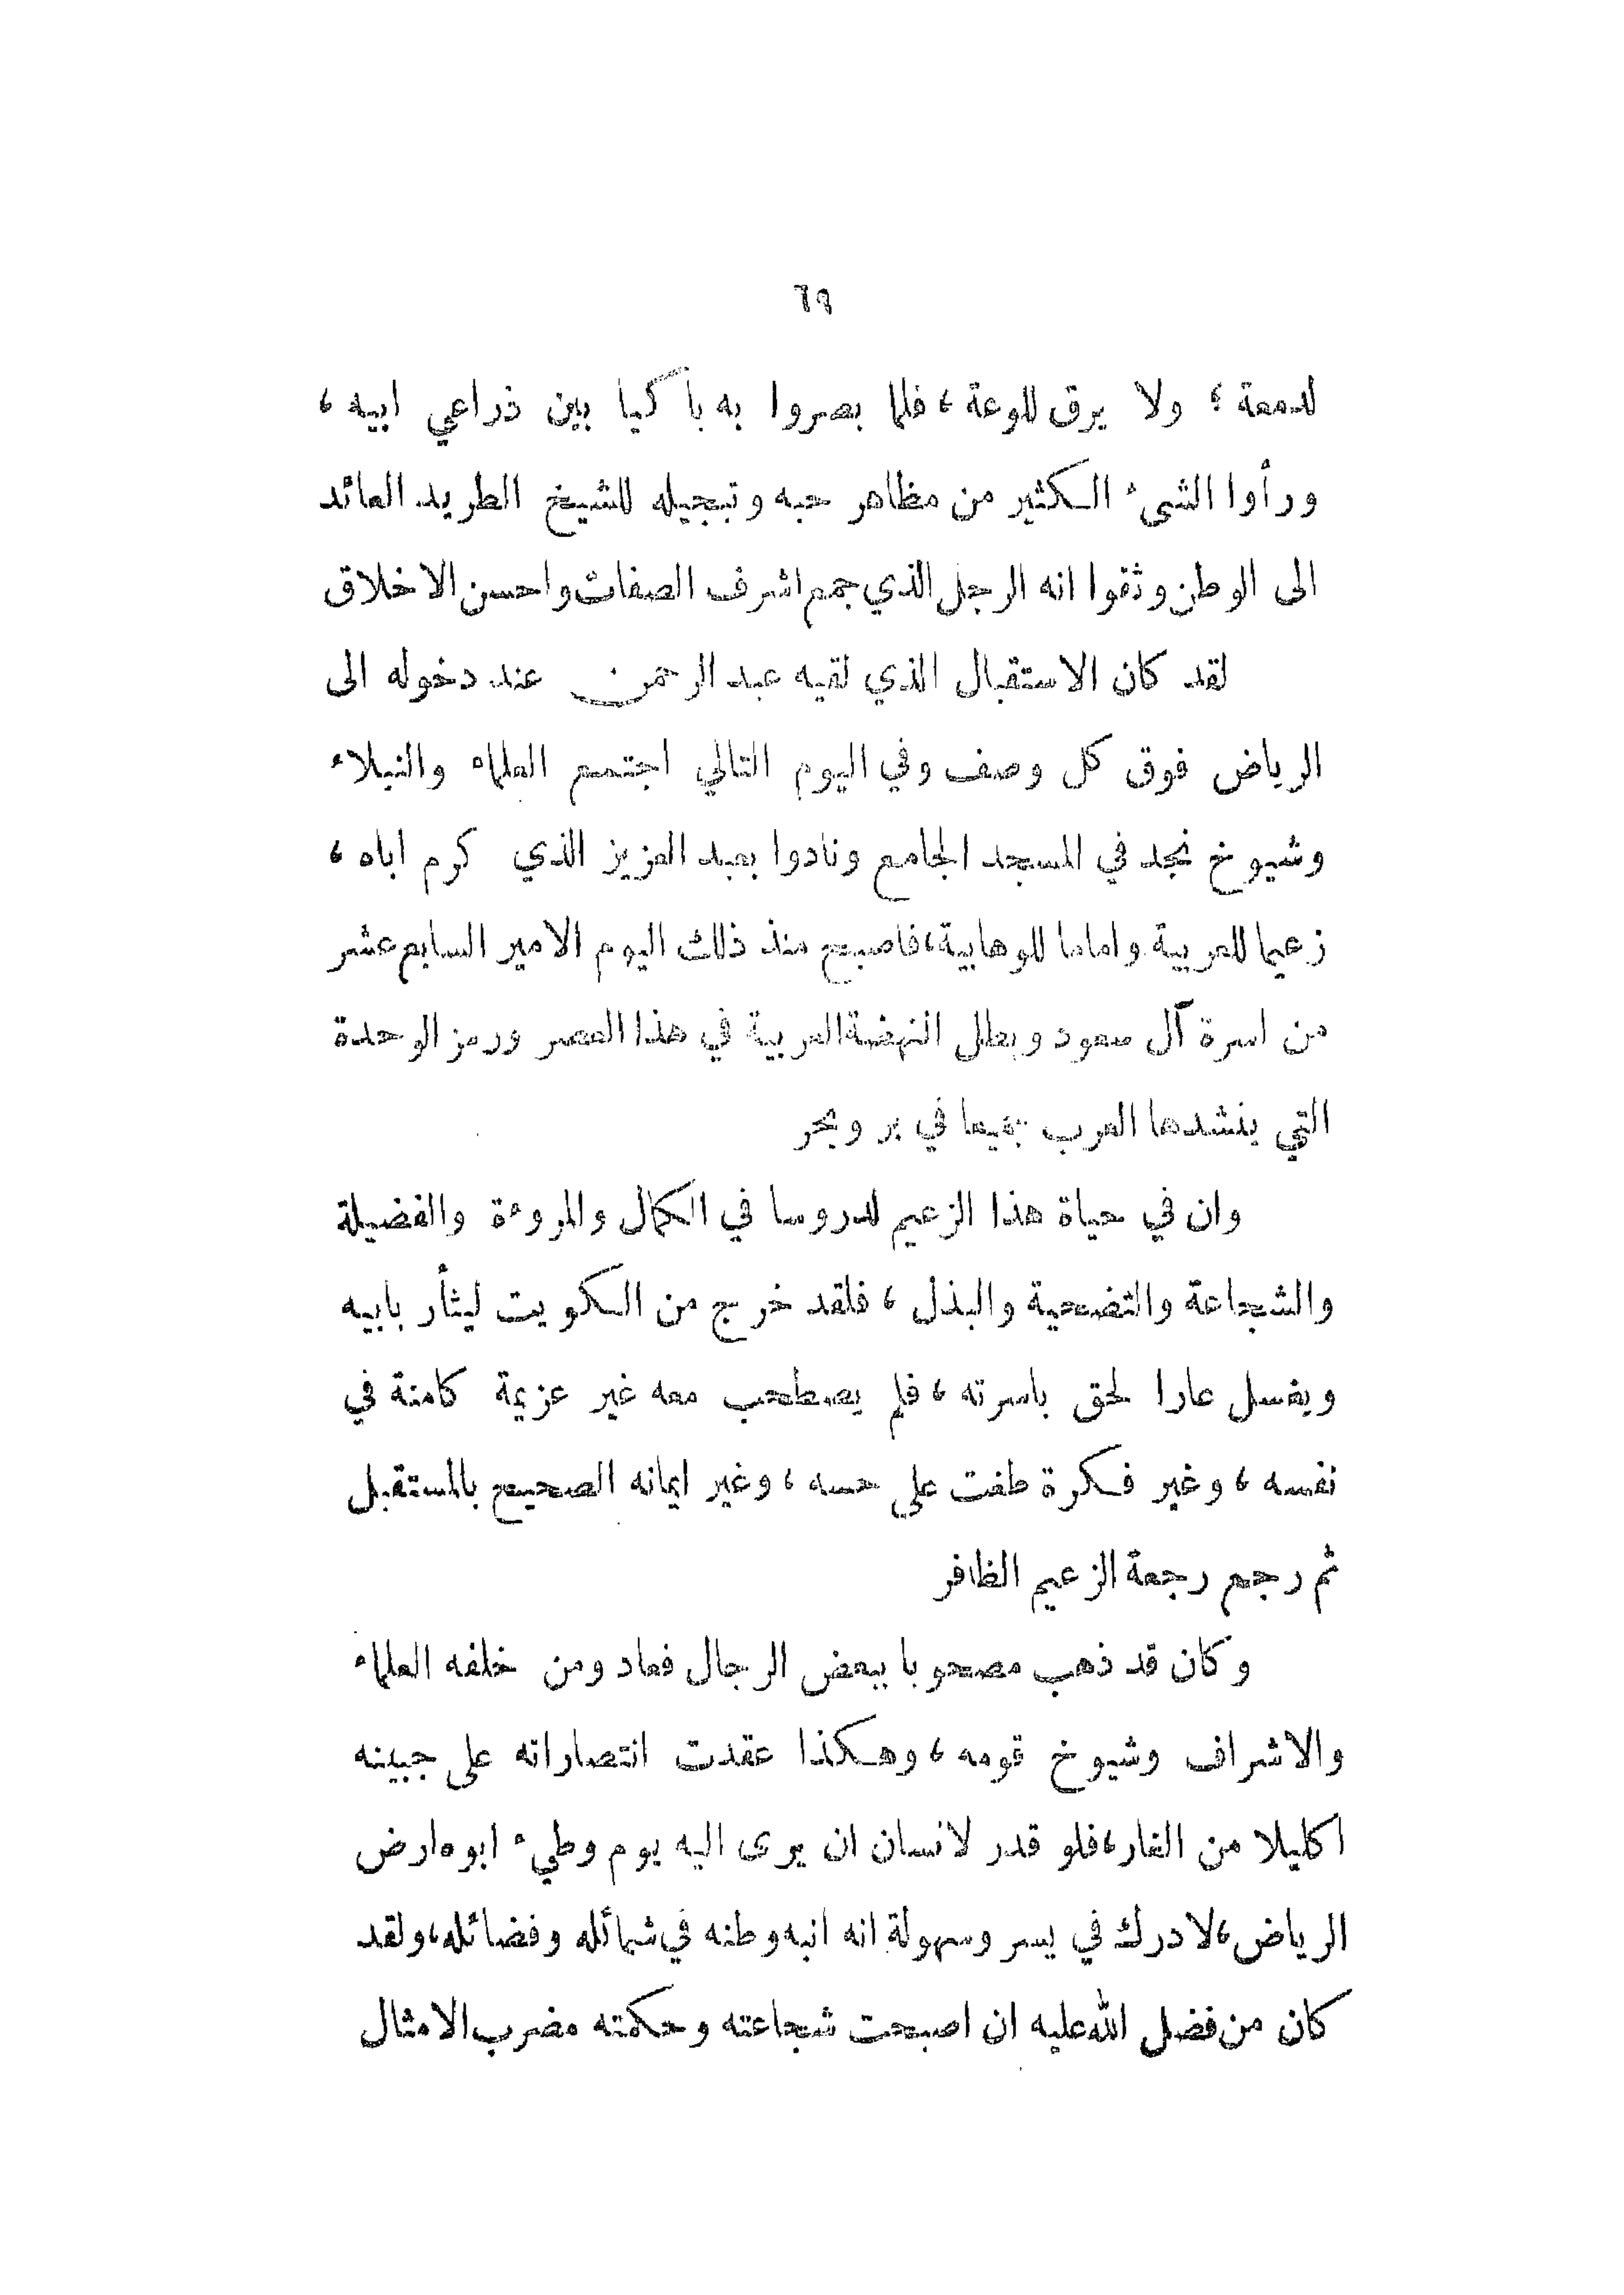 ٦٩
لدمعة ؛ ولا يرق للوعة ، فلما بصروا به باكيا بين ذراعي ابيه ،
ورأوا الشيء الكثير من مظاهر حبه وتبجيله للشيخ الطريد العائد
الى الوطن وثقوا انه الرجل الذي جمع اشرف الصفات واحسن الاخلاق
لقد كان الاستقبال الذي لقيه عبد الرحمن عند دخوله الى
الرياض فوق كل وصف وفي اليوم التالي اجتمع العلماء والنبلاء
وشيوخ نجد في المسجد الجامع ونادوا بعبد العزيز الذي كرم اباه ،
زعيما للعربية واماما للوهابية ، فاصبح منذ ذلك اليوم الامير السابع عشر
من اسرة آل سعود وبطل النهضة العربية في هذا العصر ورمز الوحدة
التي ينشدها العرب جميعا في بر وبحر
وان في حياة هذا الزعيم لدروسا في الكمال والمروءة والفضيلة
والشجاعة والتضحية والبذل ، فلقد خرج من الكويت ليثأر بابيه
ويغسل عارا لحق باسرته ، فلم يصطحب معه غير عزيمة كامنة في
نفسه ، وغير فكرة طغت على حسه ، وغير ايمانه الصحيح بالمستقبل
ثم رجع رجعة الزعيم الظافر
وكان قد ذهب مصحوبا ببعض الرجال فعاد ومن خلفه العلماء
والاشراف وشيوخ قومه ، وهكذا عقدت انتصاراته على جبينه
اكليلا من الغار ، فلو قدر لانسان ان يرى اليه يوم وطيء ابوه ارض
الرياض ، لادرك في يسر وسهولة انه انبه وطنه في شمائله وفضائله ، ولقد
كان من فضل الله عليه ان اصبحت شجاعته وحكمته مضرب الامثال